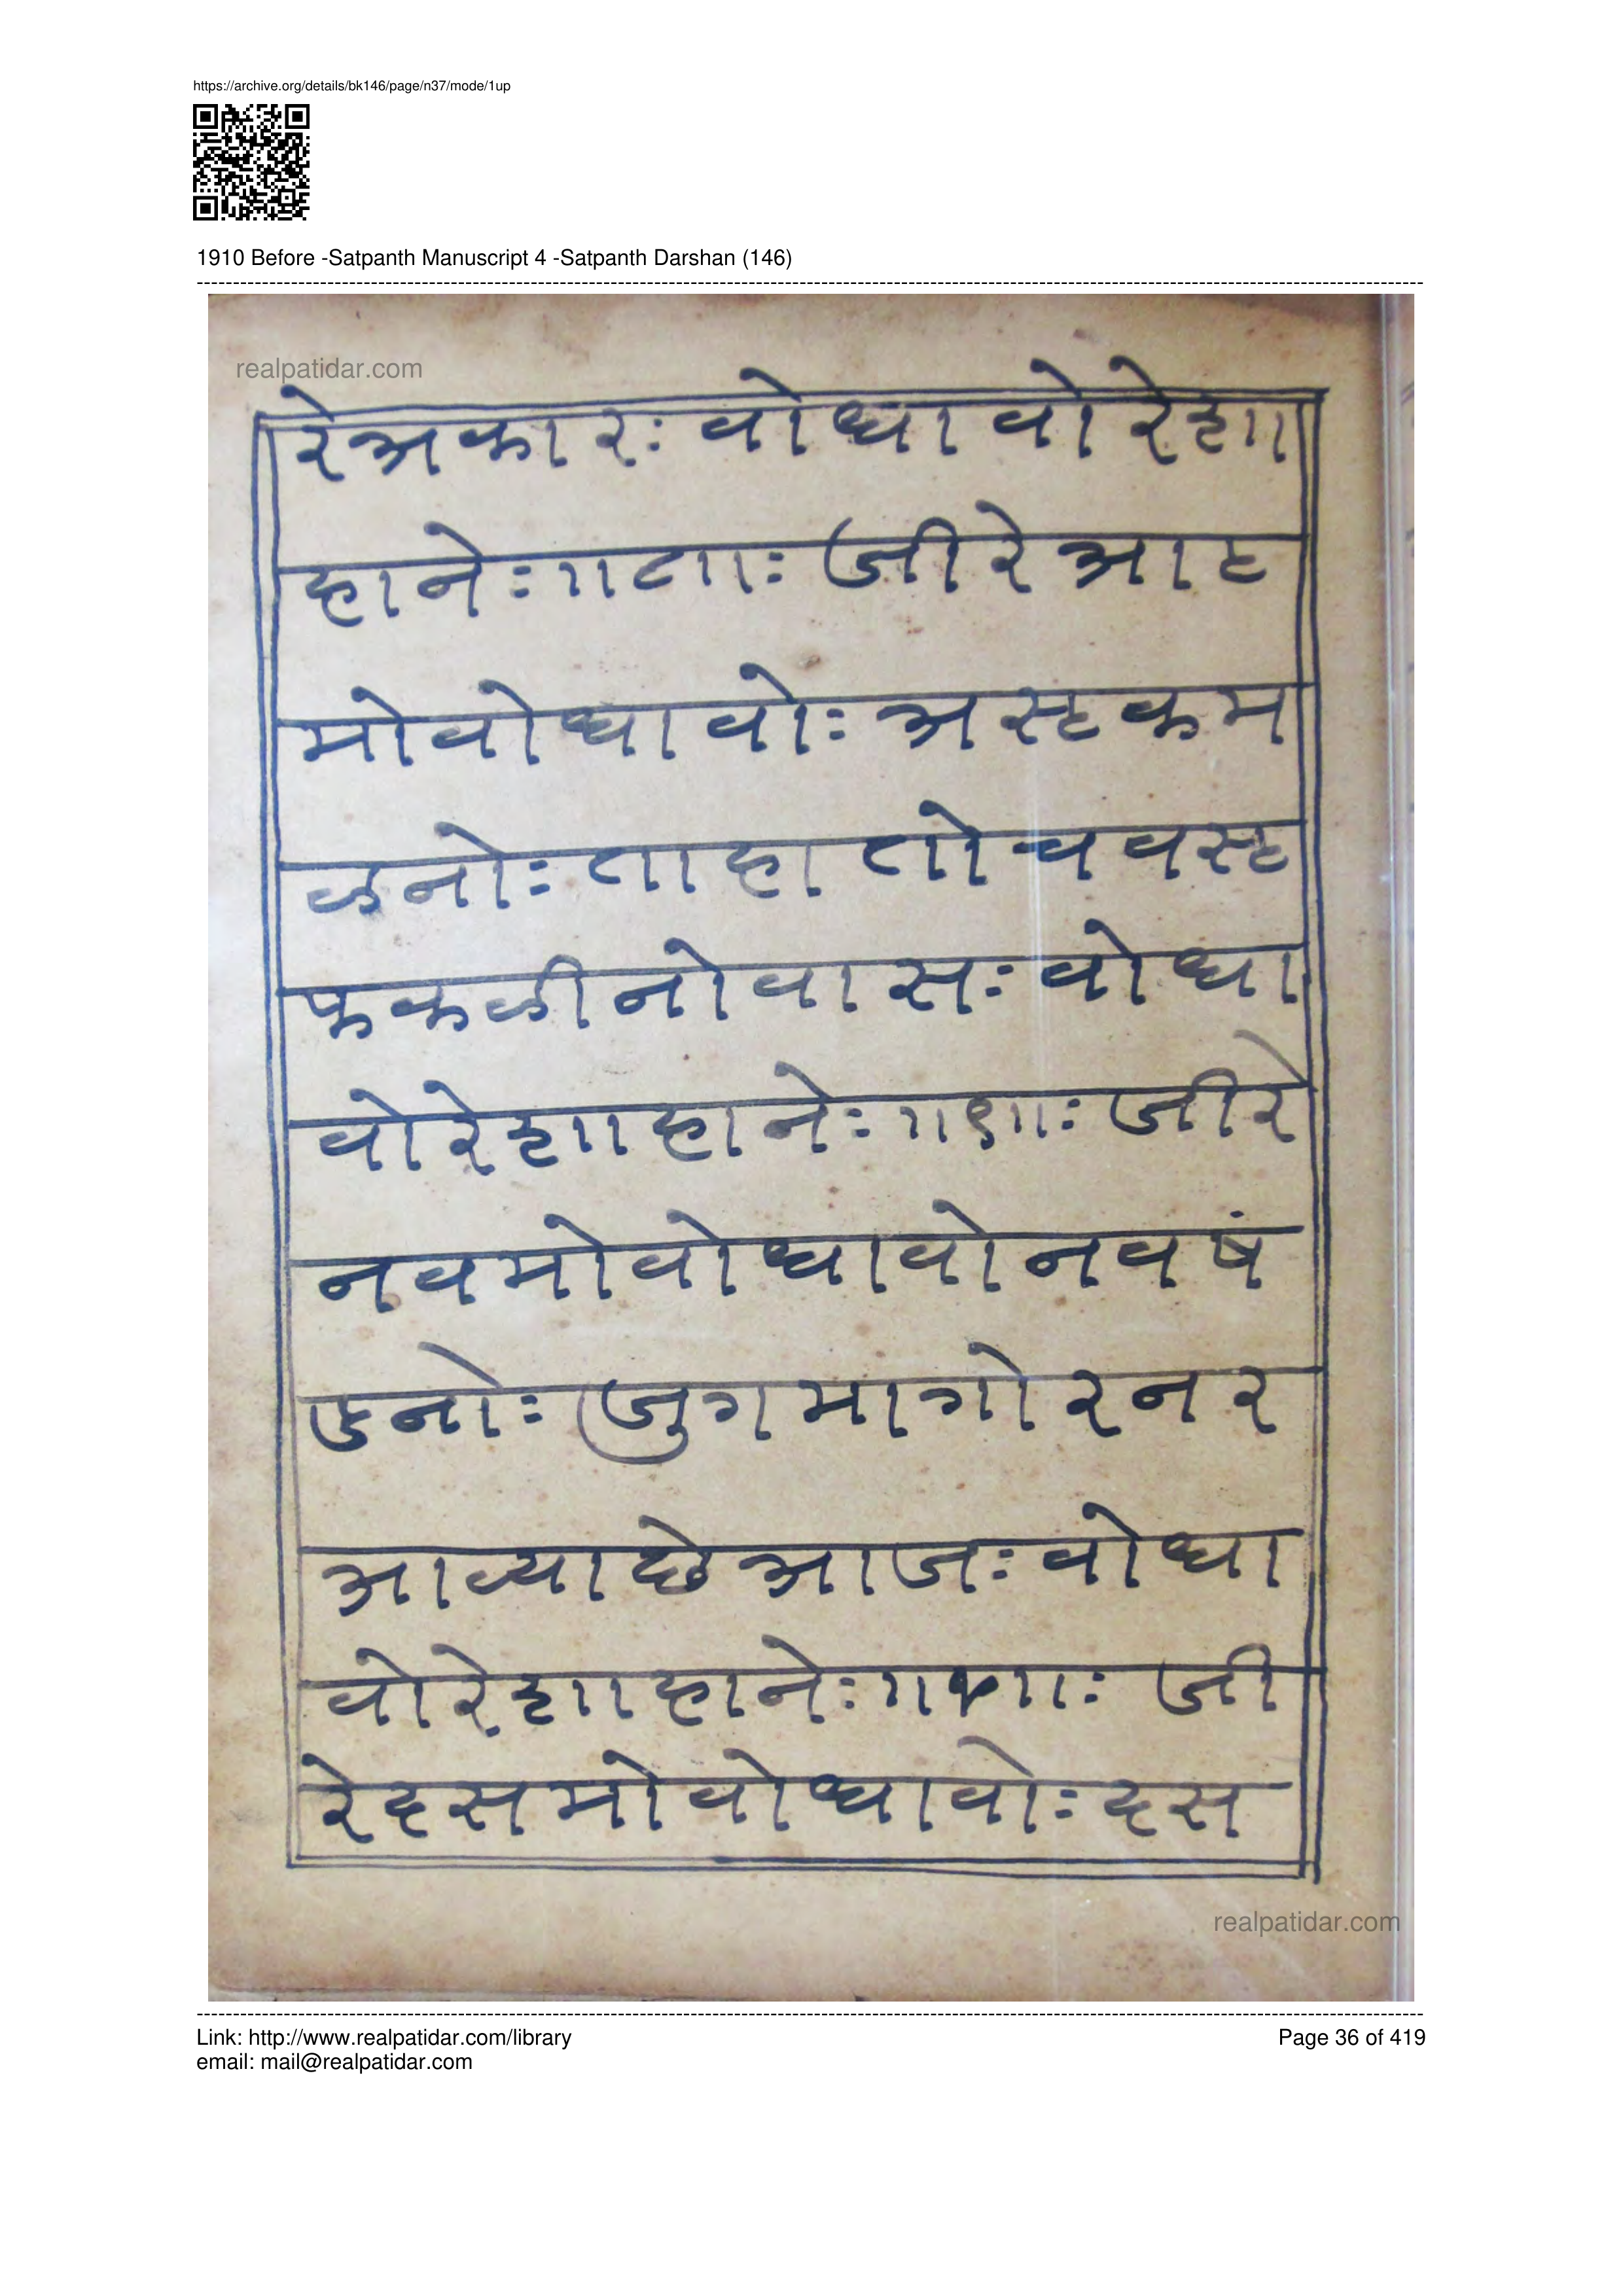 https://archive.org/details/bk146/page/n37/mode/1up
1910 Before -Satpanth Manuscript 4 -Satpanth Darshan (146)
realpatidar.com
रे अकारः वोधावो रे ज्ञा
हानेः ॥८॥ः जी रे आठ
मो वोधावोः अस्ट कम
ळनोः ताहा तो चवस्ट
फकळीनो वासः वोधा
वो रे ज्ञा हानेः ॥९॥ः जी रे
नवमो वोधावो नवषं
डनोः जुगमा गोर नर
आव्या छे आजः वोधा
वो रे ज्ञा हानेः ॥१०॥ः जी
रे दसमो वोधावोः दस
realpatidar.com
Link: http://www.realpatidar.com/library
email: mail@realpatidar.com
Page 36 of 419